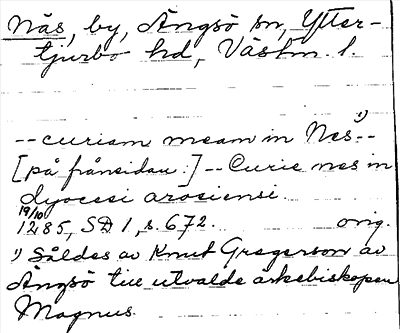 Näs, by, Ängsö sn, Ytter-
tjurbo hd, Västm. l.
-- curiam meam in Nes¹⁾--
[på frånsidan:] -- Curie nes in
dyocesi arosiensi.
19/10
1285, SD 1, s. 672. orig.
¹⁾ Såldes av Knut Gregerson av
Ängsö till utvalde ärkebiskopen
Magnus.